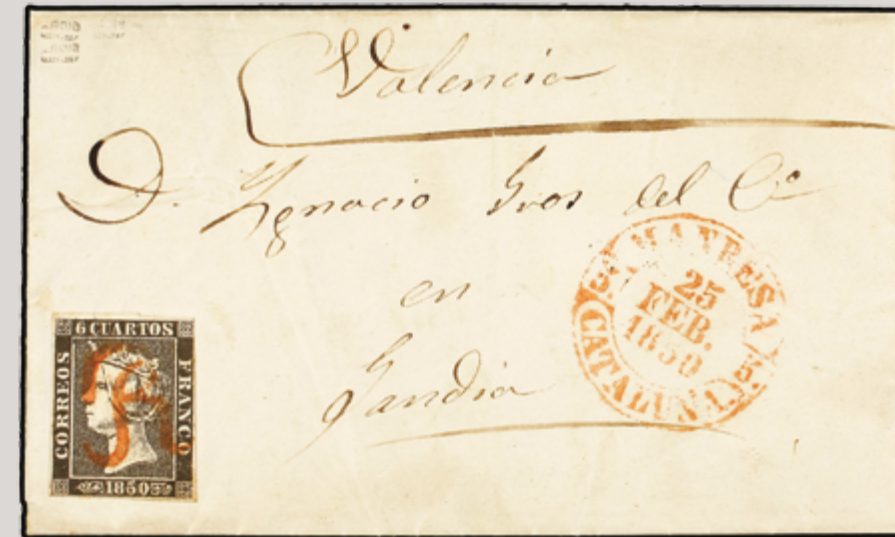 Valencia
D. Ygnacio Gros del Co
en
Gandia
MANRESA
25
FEB.
1850
CATALUÑA
6 CUARTOS
CORREOS
FRANCO
1850